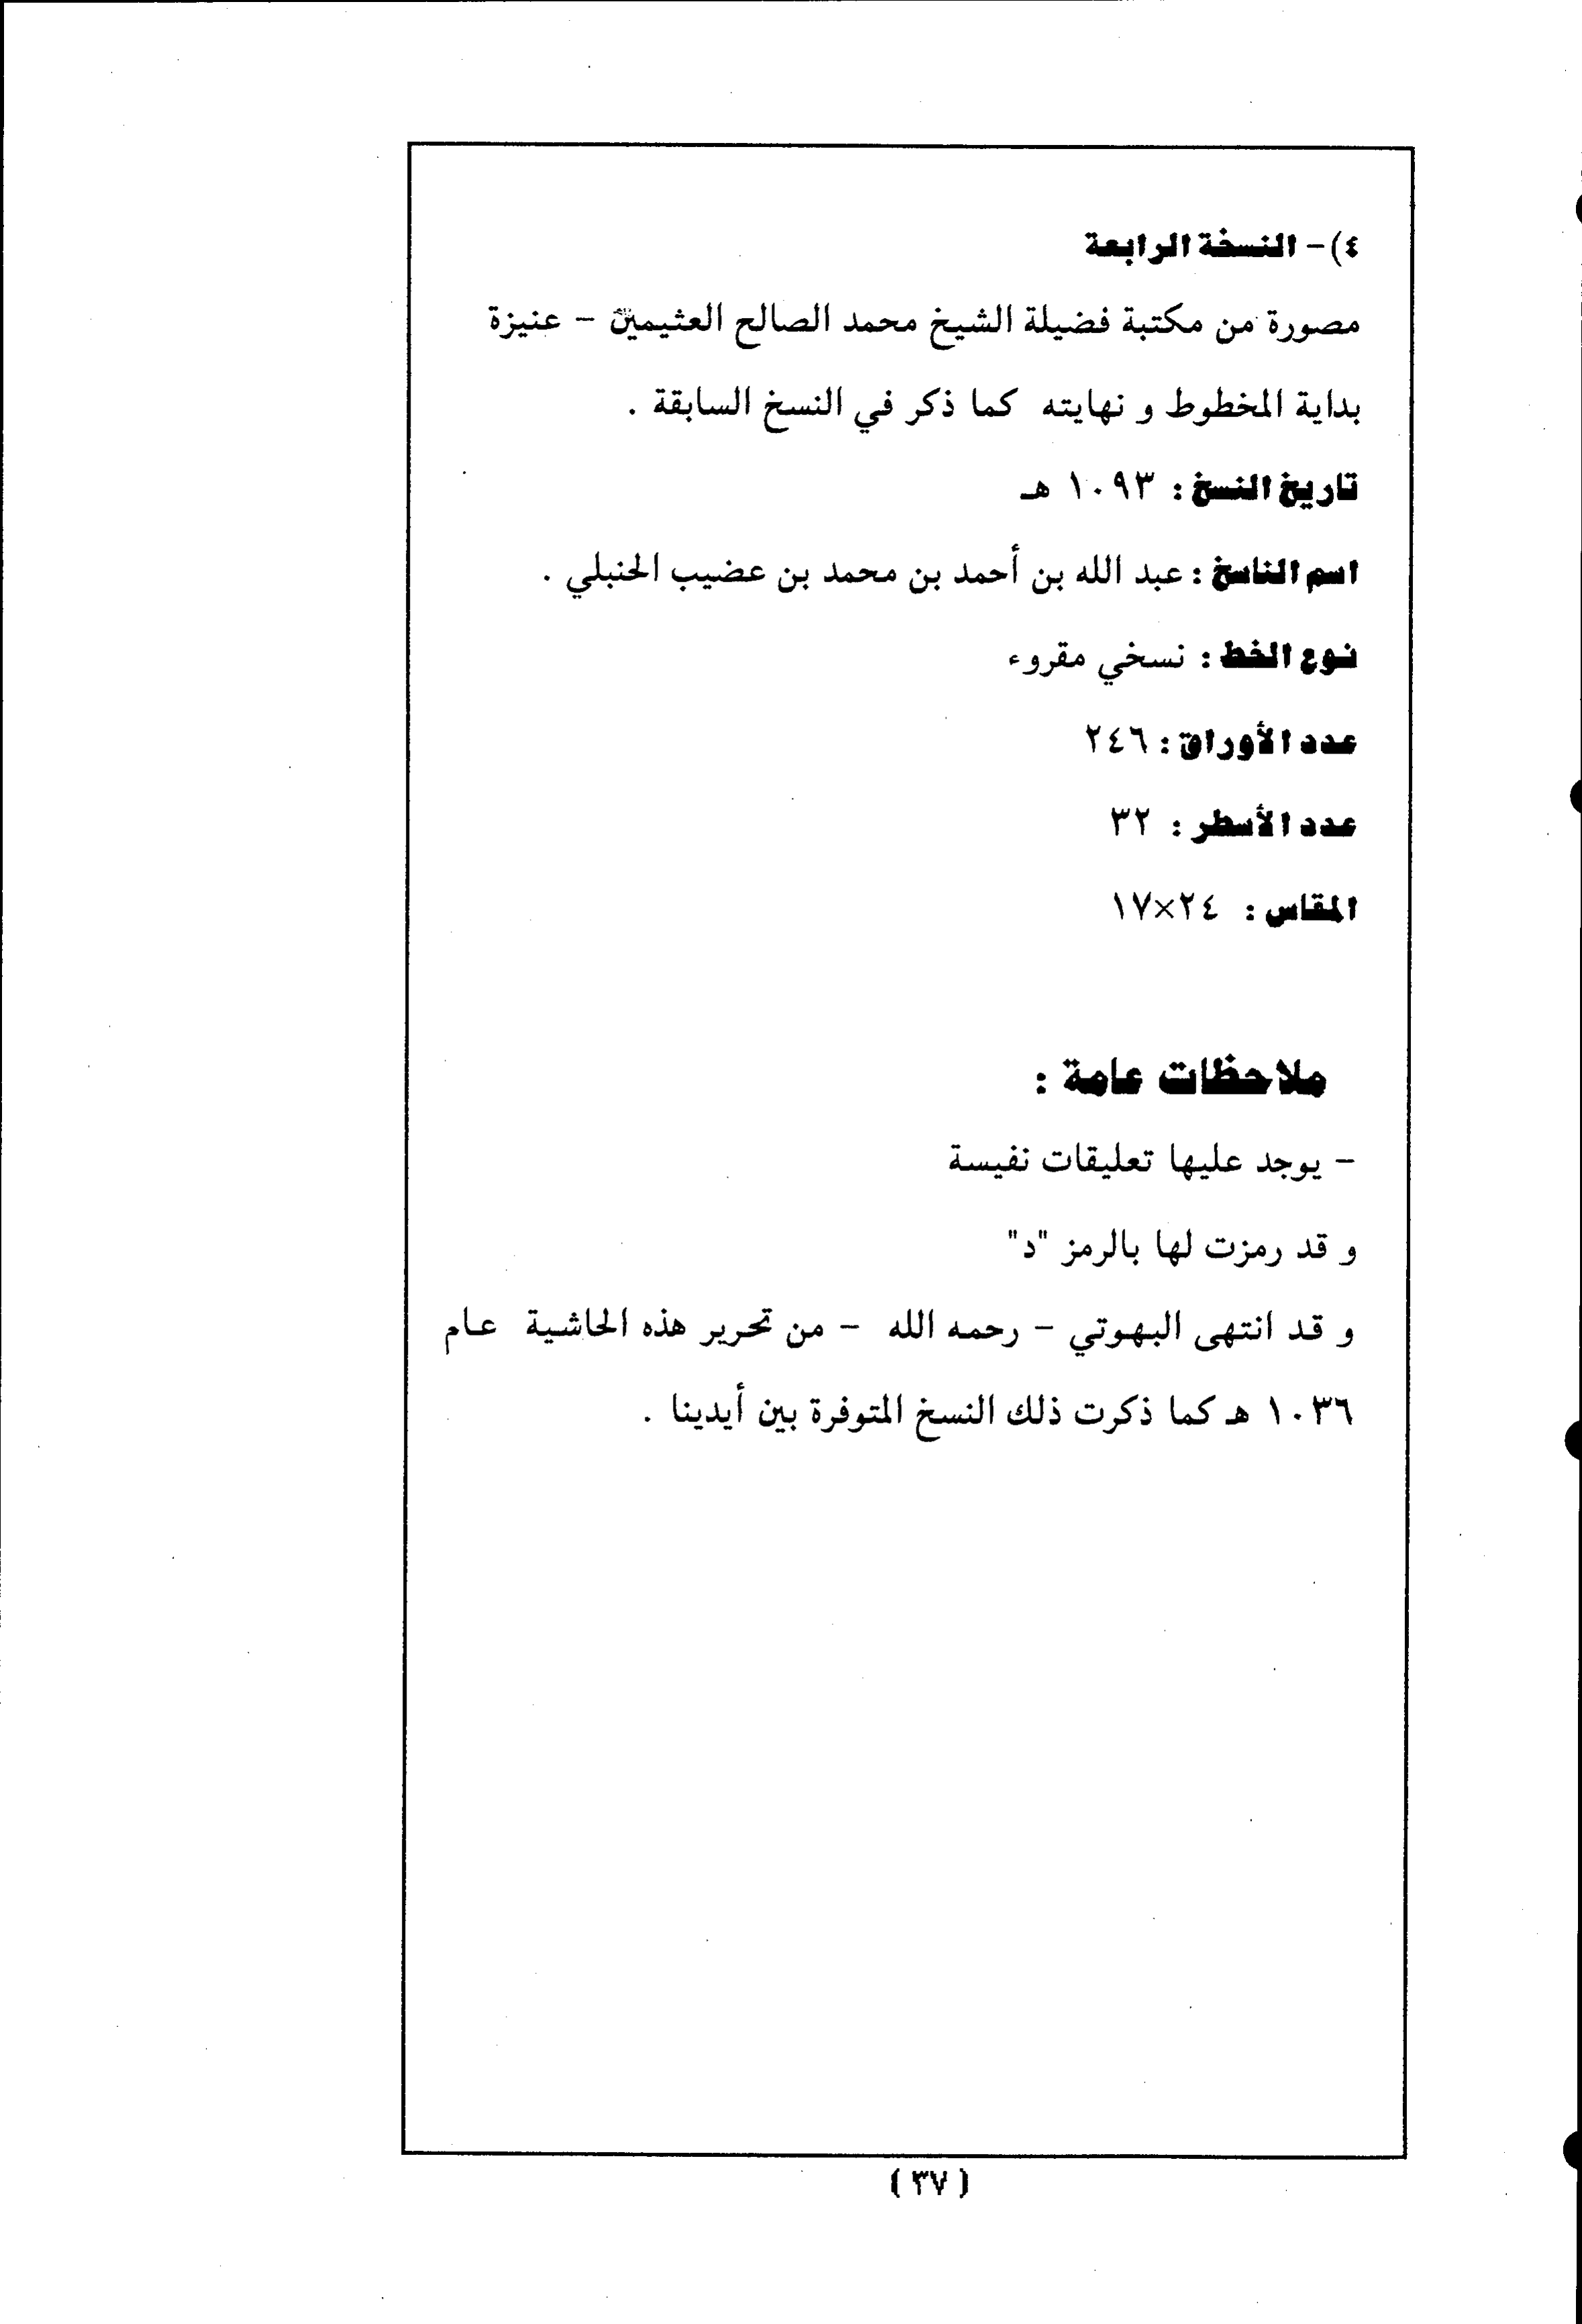 ٤)- النسخة الرابعة
مصورة من مكتبة فضيلة الشيخ محمد الصالح العثيمين - عنيزة
بداية المخطوط و نهايته كما ذكر في النسخ السابقة .
تاريخ النسخ : ١٠٩٣ هـ
اسم الناسخ : عبد الله بن أحمد بن محمد بن عضيب الحنبلي .
نوع الخط : نسخي مقروء
عدد الأوراق : ٢٤٦
عدد الأسطر : ٣٢
المقاس : ٢٤×١٧
ملاحظات عامة :
- يوجد عليها تعليقات نفيسة
و قد رمزت لها بالرمز "د"
و قد انتهى البهوتي - رحمه الله - من تحرير هذه الحاشية عام
١٠٣٦ هـ كما ذكرت ذلك النسخ المتوفرة بين أيدينا .
( ٣٧ )